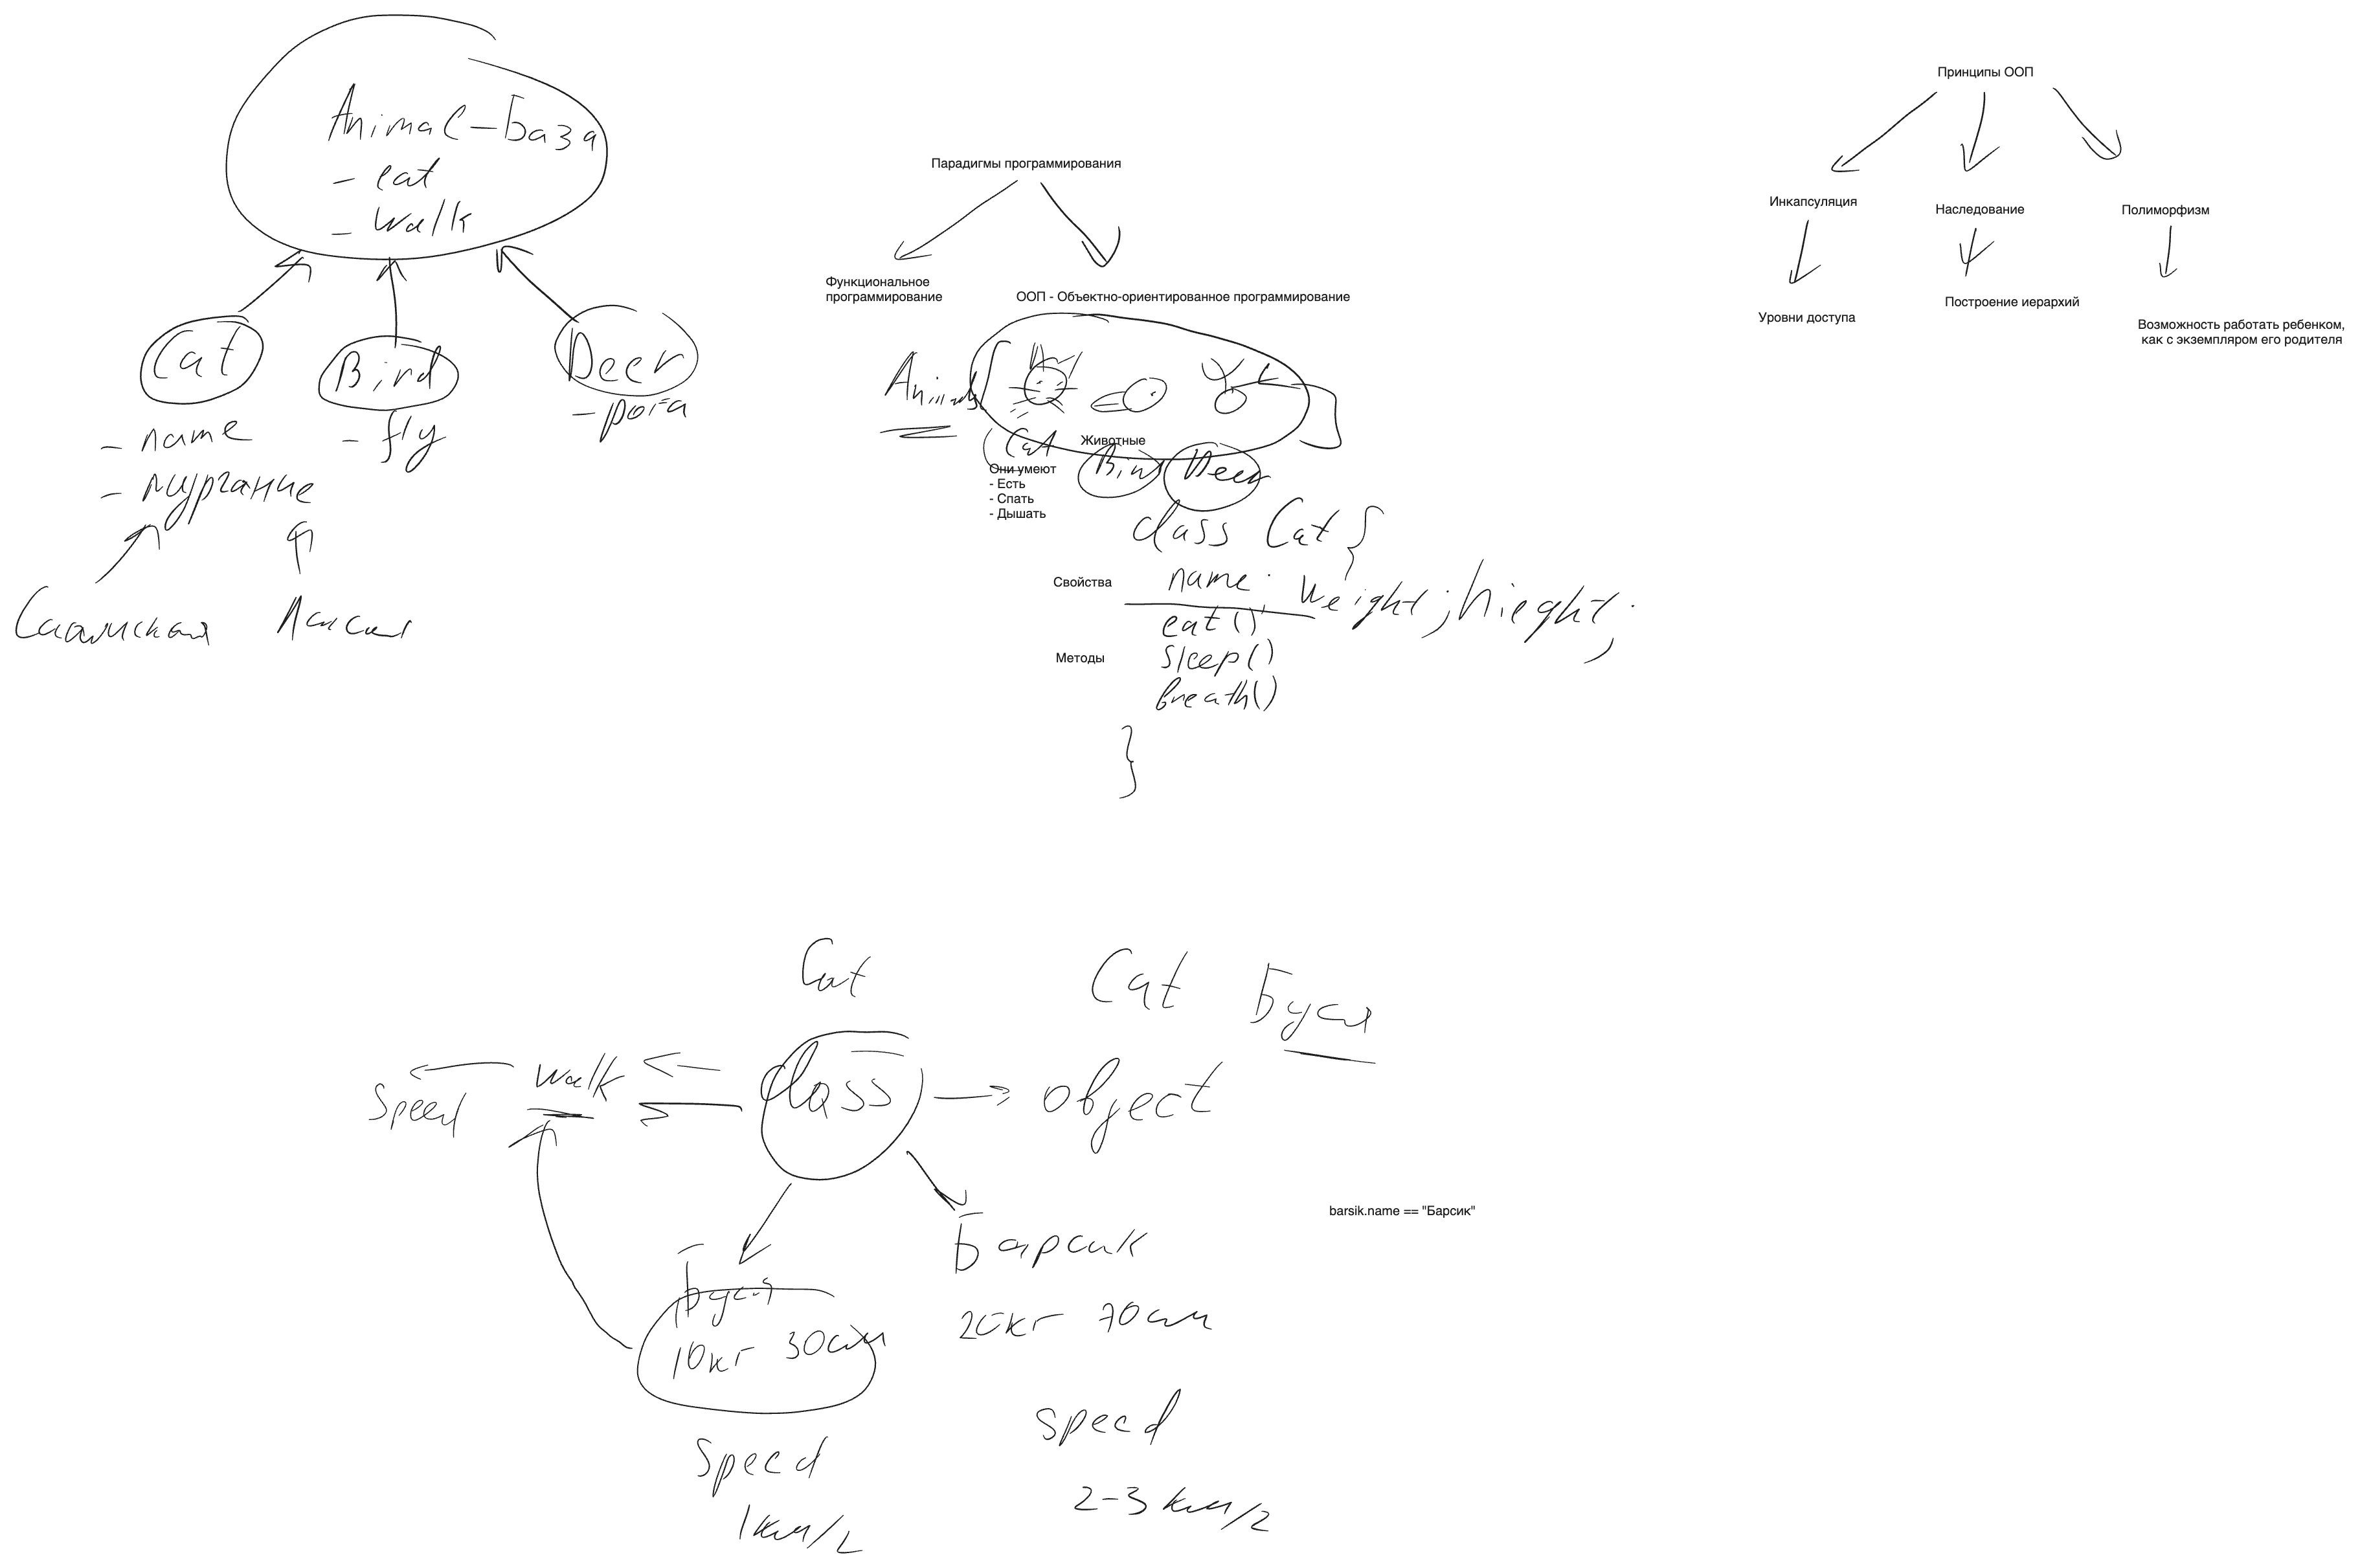 Animal - База
- eat
- walk
Cat
- name
- мурчание
Сиамская
Bird
- fly
Deer
- рога
Парадигмы программирования
Функциональное
программирование
ООП - Объектно-ориентированное программирование
Животные
Cat
Bird
Deer
Они умеют
- Есть
- Спать
- Дышать
class Cat {
Свойства
name; weight; hieght;
eat()
Методы
sleep()
breath()
}
Принципы ООП
Инкапсуляция
Наследование
Полиморфизм
Уровни доступа
Построение иерархий
Возможность работать ребенком,
как с экземпляром его родителя
Cat
Cat Буся
speed
walk
class
object
Буся
10кг 30см
speed
1км/г
Барсик
20кг 70см
speed
2-3 км/г
barsik.name == "Барсик"